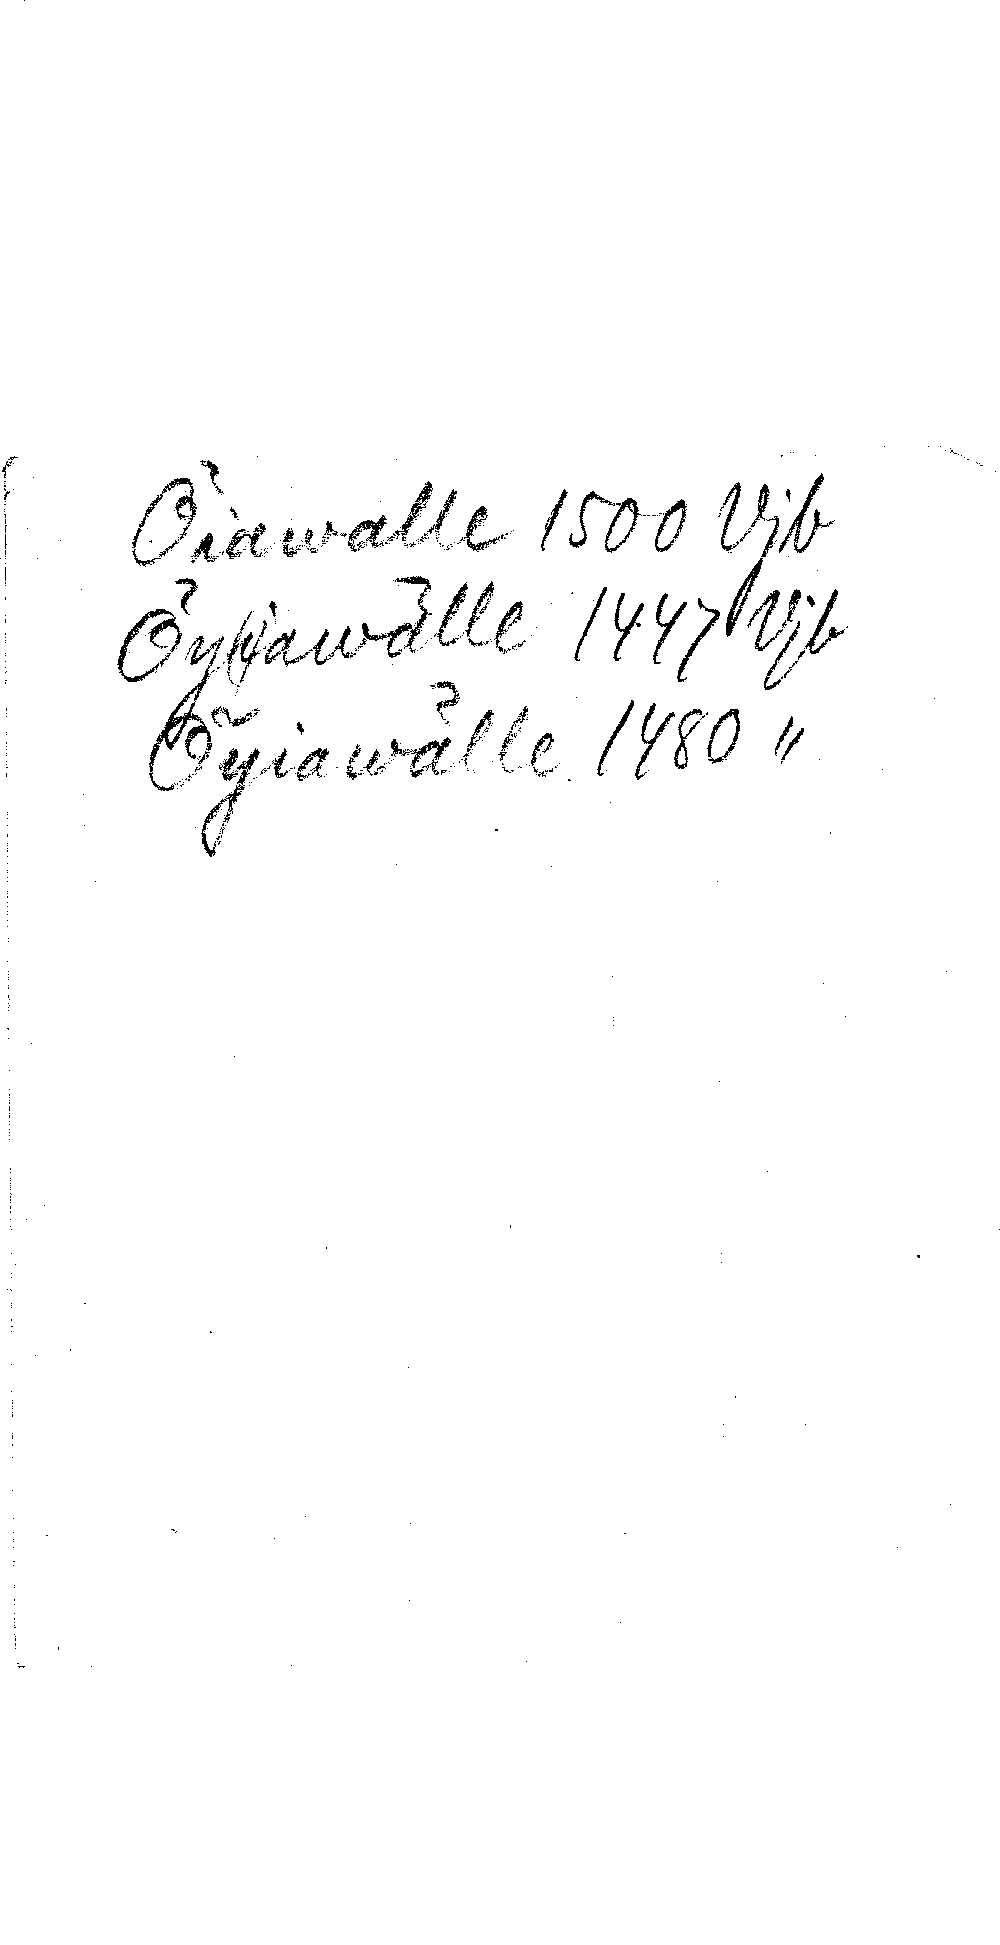 Öiawalle 1500 Vjb
Öy(i)awälle 1447 Vjb
Öÿiawälle 1480 "